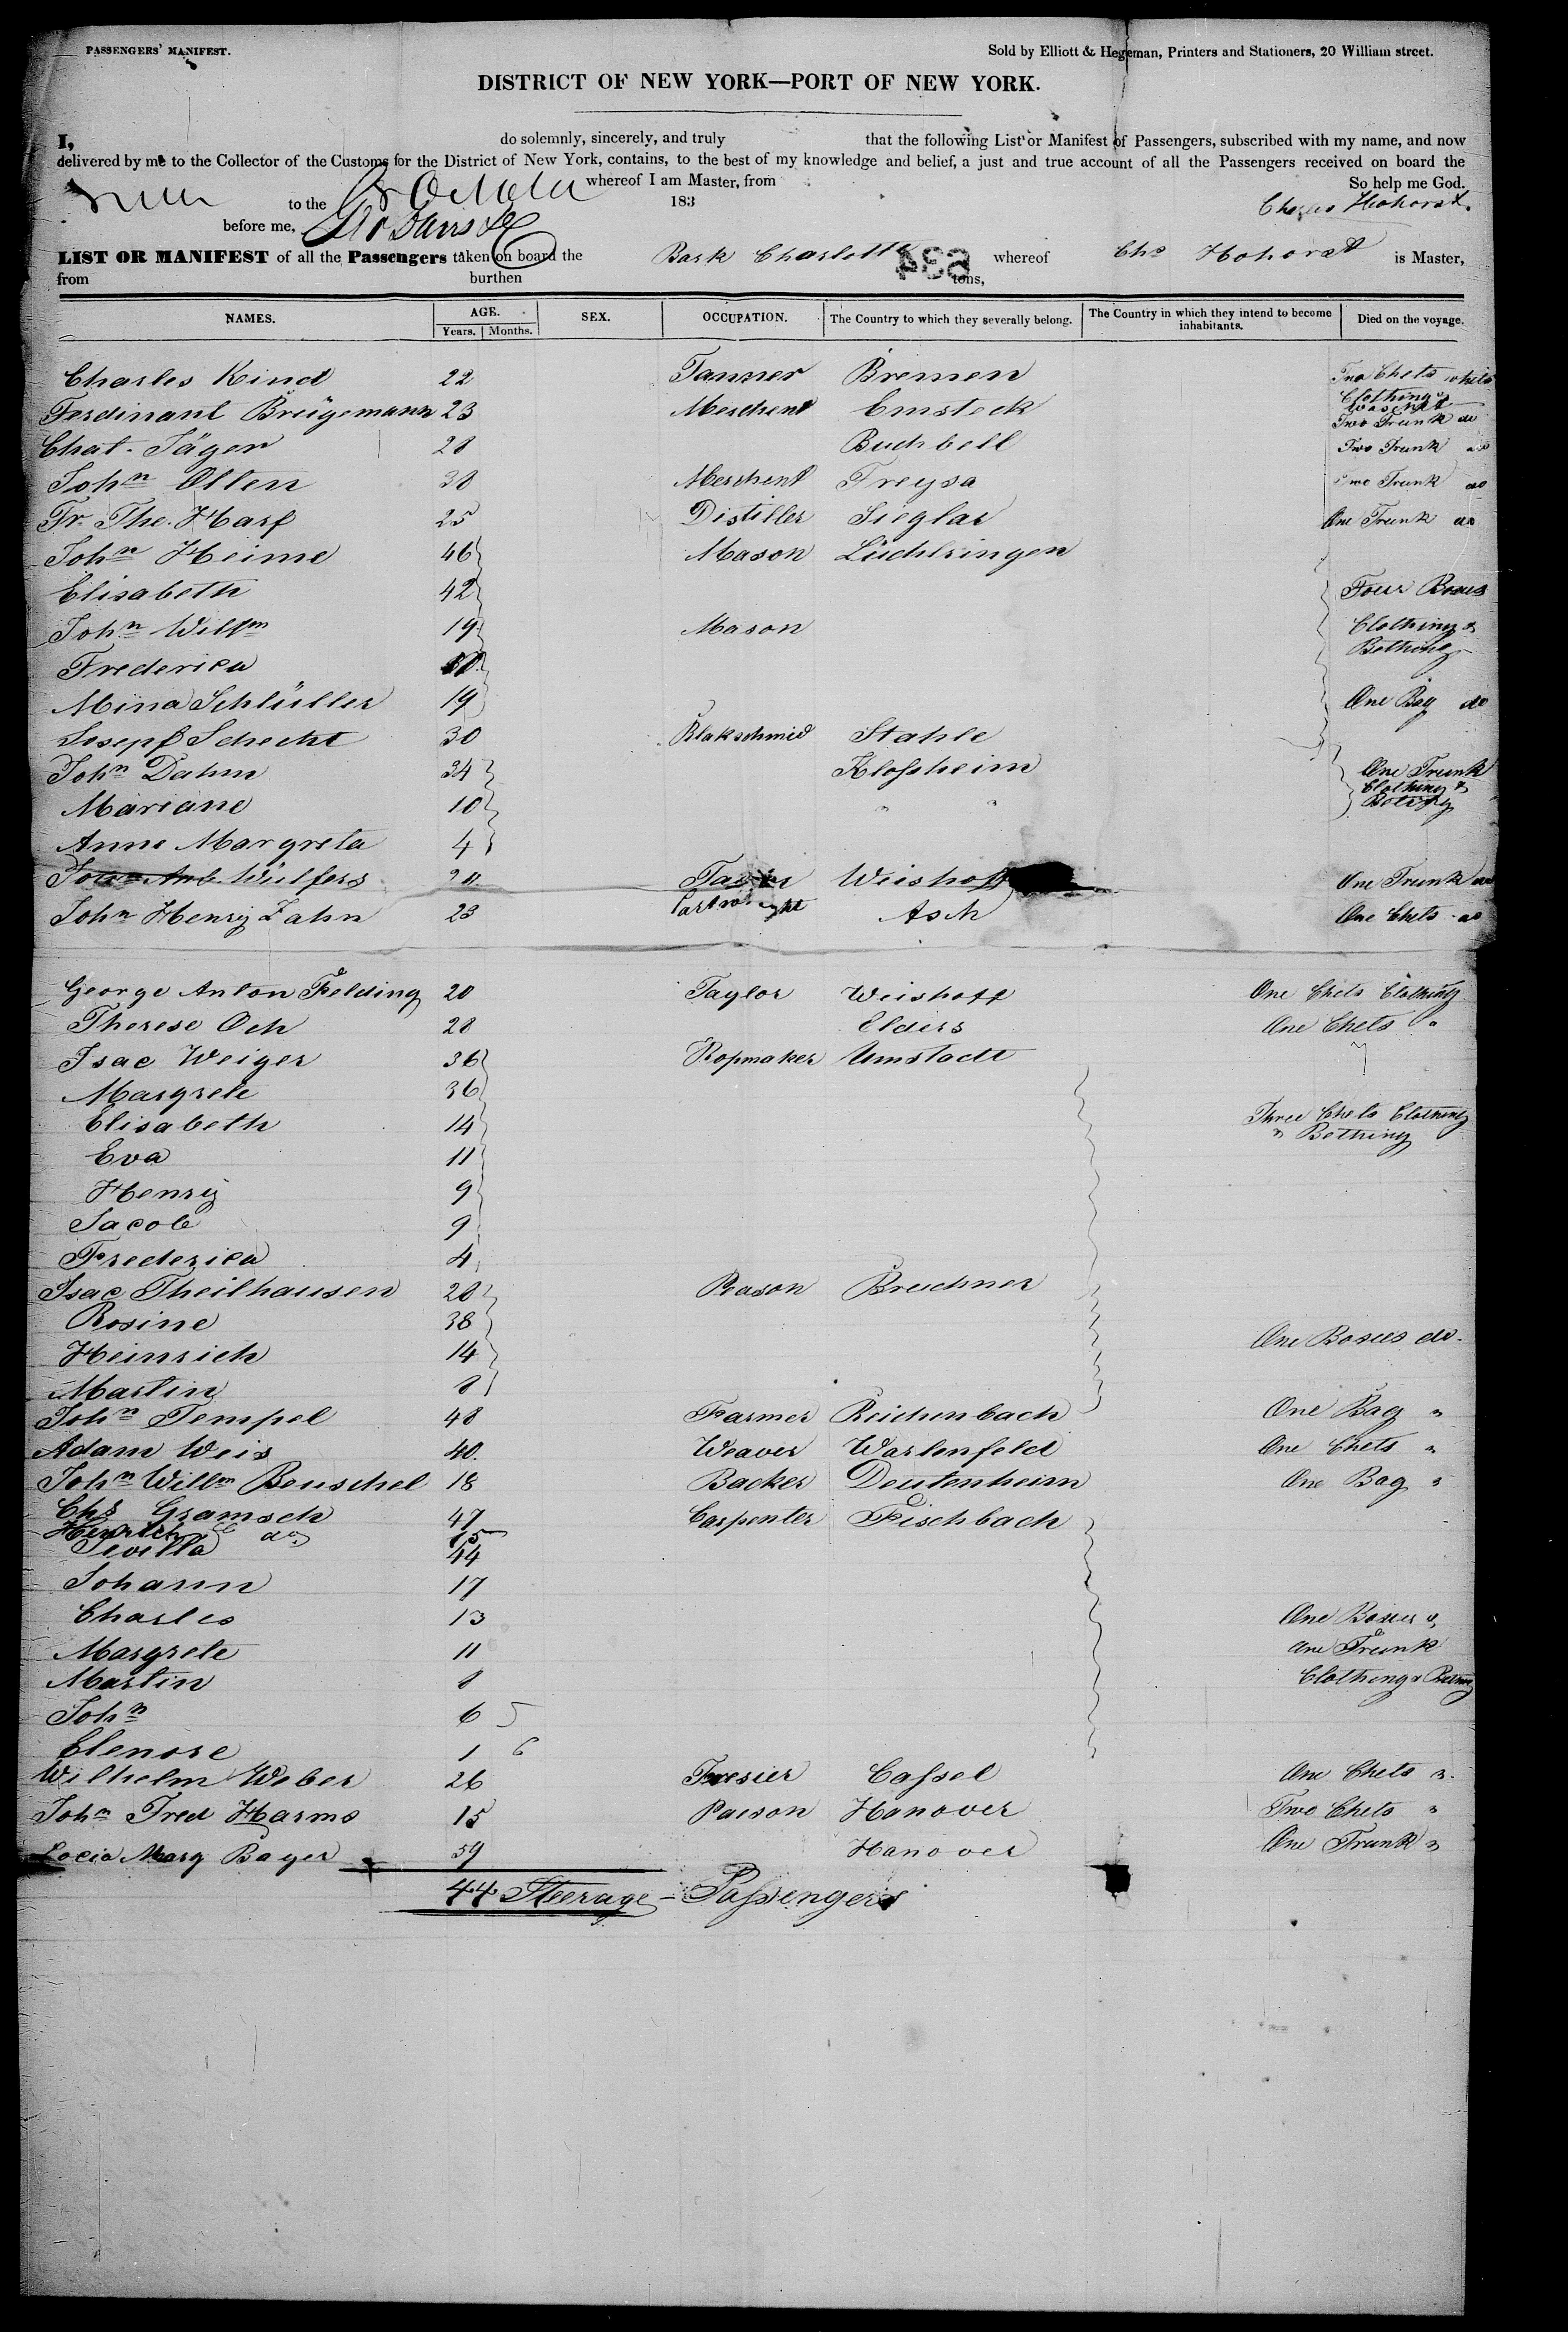 PASSENGERS' MANIFEST.
Sold by Elliott & Hegeman, Printers and Stationers, 20 William street.
DISTRICT OF NEW YORK—PORT OF NEW YORK.
I, do solemnly, sincerely, and truly that the following List or Manifest of Passengers, subscribed with my name, and now
delivered by me to the Collector of the Customs for the District of New York, contains, to the best of my knowledge and belief, a just and true account of all the Passengers received on board the
whereof I am Master, from So help me God.
to the 8 October 183 Charles Hohorst.
before me,
LIST OR MANIFEST of all the Passengers taken on board the Bark Charlotte whereof Chs Hohorst is Master,
from burthen 634 tons,
NAMES. AGE. SEX. OCCUPATION. The Country to which they severally belong. The Country in which they intend to become inhabitants. Died on the voyage.
Years. Months.
Charles Kind 22 Tanner Bremen Two Chets
Ferdinant Brügemann 23 Merchent Emsteck Clothing & Two Trunk do
Chat. Jäger 28 Buchbell Two Trunk do
John Olten 38 Merchent Treysa Two Trunk do
Fr. The. Harf 25 Distiller Sieglar One Trunk do
John Heime 46 Mason Lüchtringen
Elisabeth 42 Four Boxes
John Willm 19 Mason Clothing &
Frederica Bething
Mina Schlüller 19 One Bag do
Joseph Schecht 30 Blakschmied Stahle
John Dahm 34 Klossheim One Trunk
Mariane 10 " " Clothing & Bething
Anne Margreta 4
Wülfers Weishoff One Trunk do
John Henry Zahn 23 Cartwright Asch One Chets do
George Anton Felding 20 Taylor Weishoff One Chets Clothing
Therese Och 28 Elders One Chets "
Isac Weiger 36 Ropmaker Umstadt
Margrete 36
Elisabeth 14 Three Chets Clothing
Eva 11 & Bething
Henry 9
Jacob 9
Frederica 4
Isac Theilhausen 28 Bruchner
Rosine 38
Heinrich 14 One Boxes do
Martin 8
John Tempel 48 Farmer Reichenbach One Bag "
Adam Weis 40 Weaver Wartenfeld One Chets "
John Willm Beuschel 18 Backer Deutenheim One Bag "
Chs Gramsch 47 Carpenter Fischbach
Heinrich do 15
Sevilla 44
Johann 17
Charles 13 One Boxes &
Margrete 11 One Trunk
Martin 8 Clothing &
John 6 5
Elenore 1 6
Wilhelm Weber 26 Cassel One Chets "
John Fred Harms 15 Hanover Two Chets "
Marg Bayer 59 Hanover One Trunk "
44 Steerage - Passengers